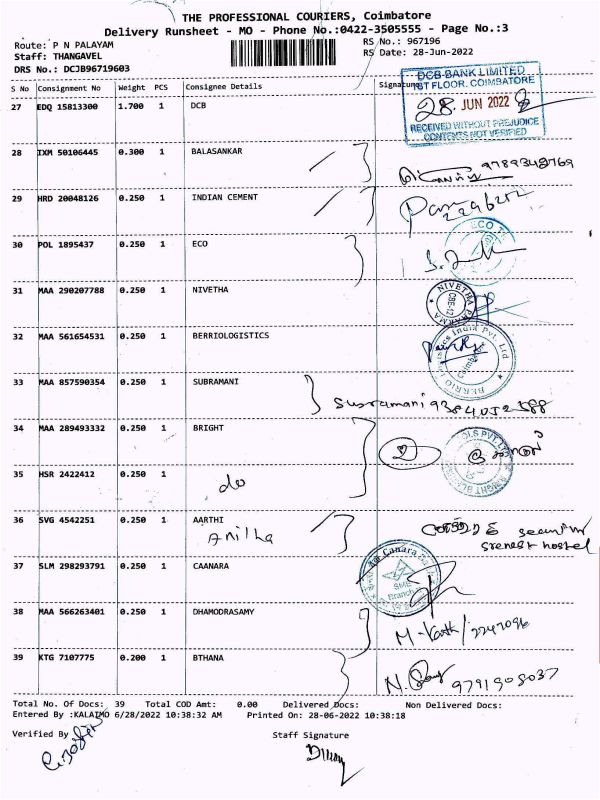 THE PROFESSIONAL COURIERS, Coimbatore
Delivery Runsheet - MO - Phone No.:0422-3505555 - Page No.:3
Route: P N PALAYAM RS No.: 967196
Staff: THANGAVEL RS Date: 28-Jun-2022
DRS No.: DCJB96719603
S No Consignment No Weight PCS Consignee Details Signature
DCB BANK LIMITED
1ST FLOOR, COIMBATORE
28 JUN 2022
RECEIVED WITHOUT PREJUDICE
CONTENTS NOT VERIFIED
27 EDQ 15813300 1.700 1 DCB
28 IXM 50106445 0.300 1 BALASANKAR
9789348769
29 HRD 20048126 0.250 1 INDIAN CEMENT
30 POL 1895437 0.250 1 ECO
ECO
31 MAA 290207788 0.250 1 NIVETHA
NIVETHA
32 MAA 561654531 0.250 1 BERRIOLOGISTICS
Coimbatore
33 MAA 857590354 0.250 1 SUBRAMANI
Subramani 9384052588
34 MAA 289493332 0.250 1 BRIGHT
35 HSR 2422412 0.250 1
do
36 SVG 4542251 0.250 1 AARTHI
Anitha
security
hostel
37 SLM 298293791 0.250 1 CAANARA
Canara Bank
SME
Branch
38 MAA 566263401 0.250 1 DHAMODRASAMY
2247096
39 KTG 7107775 0.200 1 BTHANA
9791908037
Total No. Of Docs: 39 Total COD Amt: 0.00 Delivered Docs: Non Delivered Docs:
Entered By :KALAIMO 6/28/2022 10:38:32 AM Printed On: 28-06-2022 10:38:18
Verified By Staff Signature